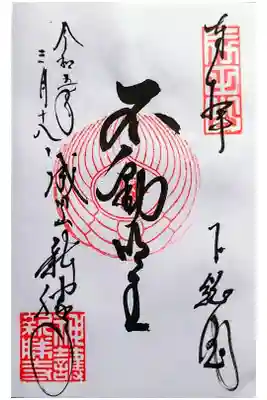 奉拝
下総国
不動明王
令和五年
三月十八日
成田山新勝寺
神護
新勝寺